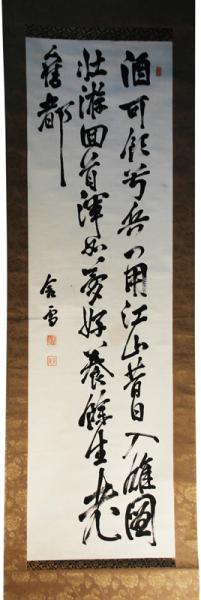 酒可飲兮兵可用江山昔日入雄圖
壯游回首渾如夢好養餘生老
舊都
含雪